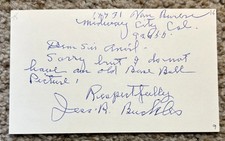 Van Buren
Midway City Cal.
Dear Sir
Sorry but I do not
have an old Base Ball
Picture!
Respectfully
Jess. R. Buckles